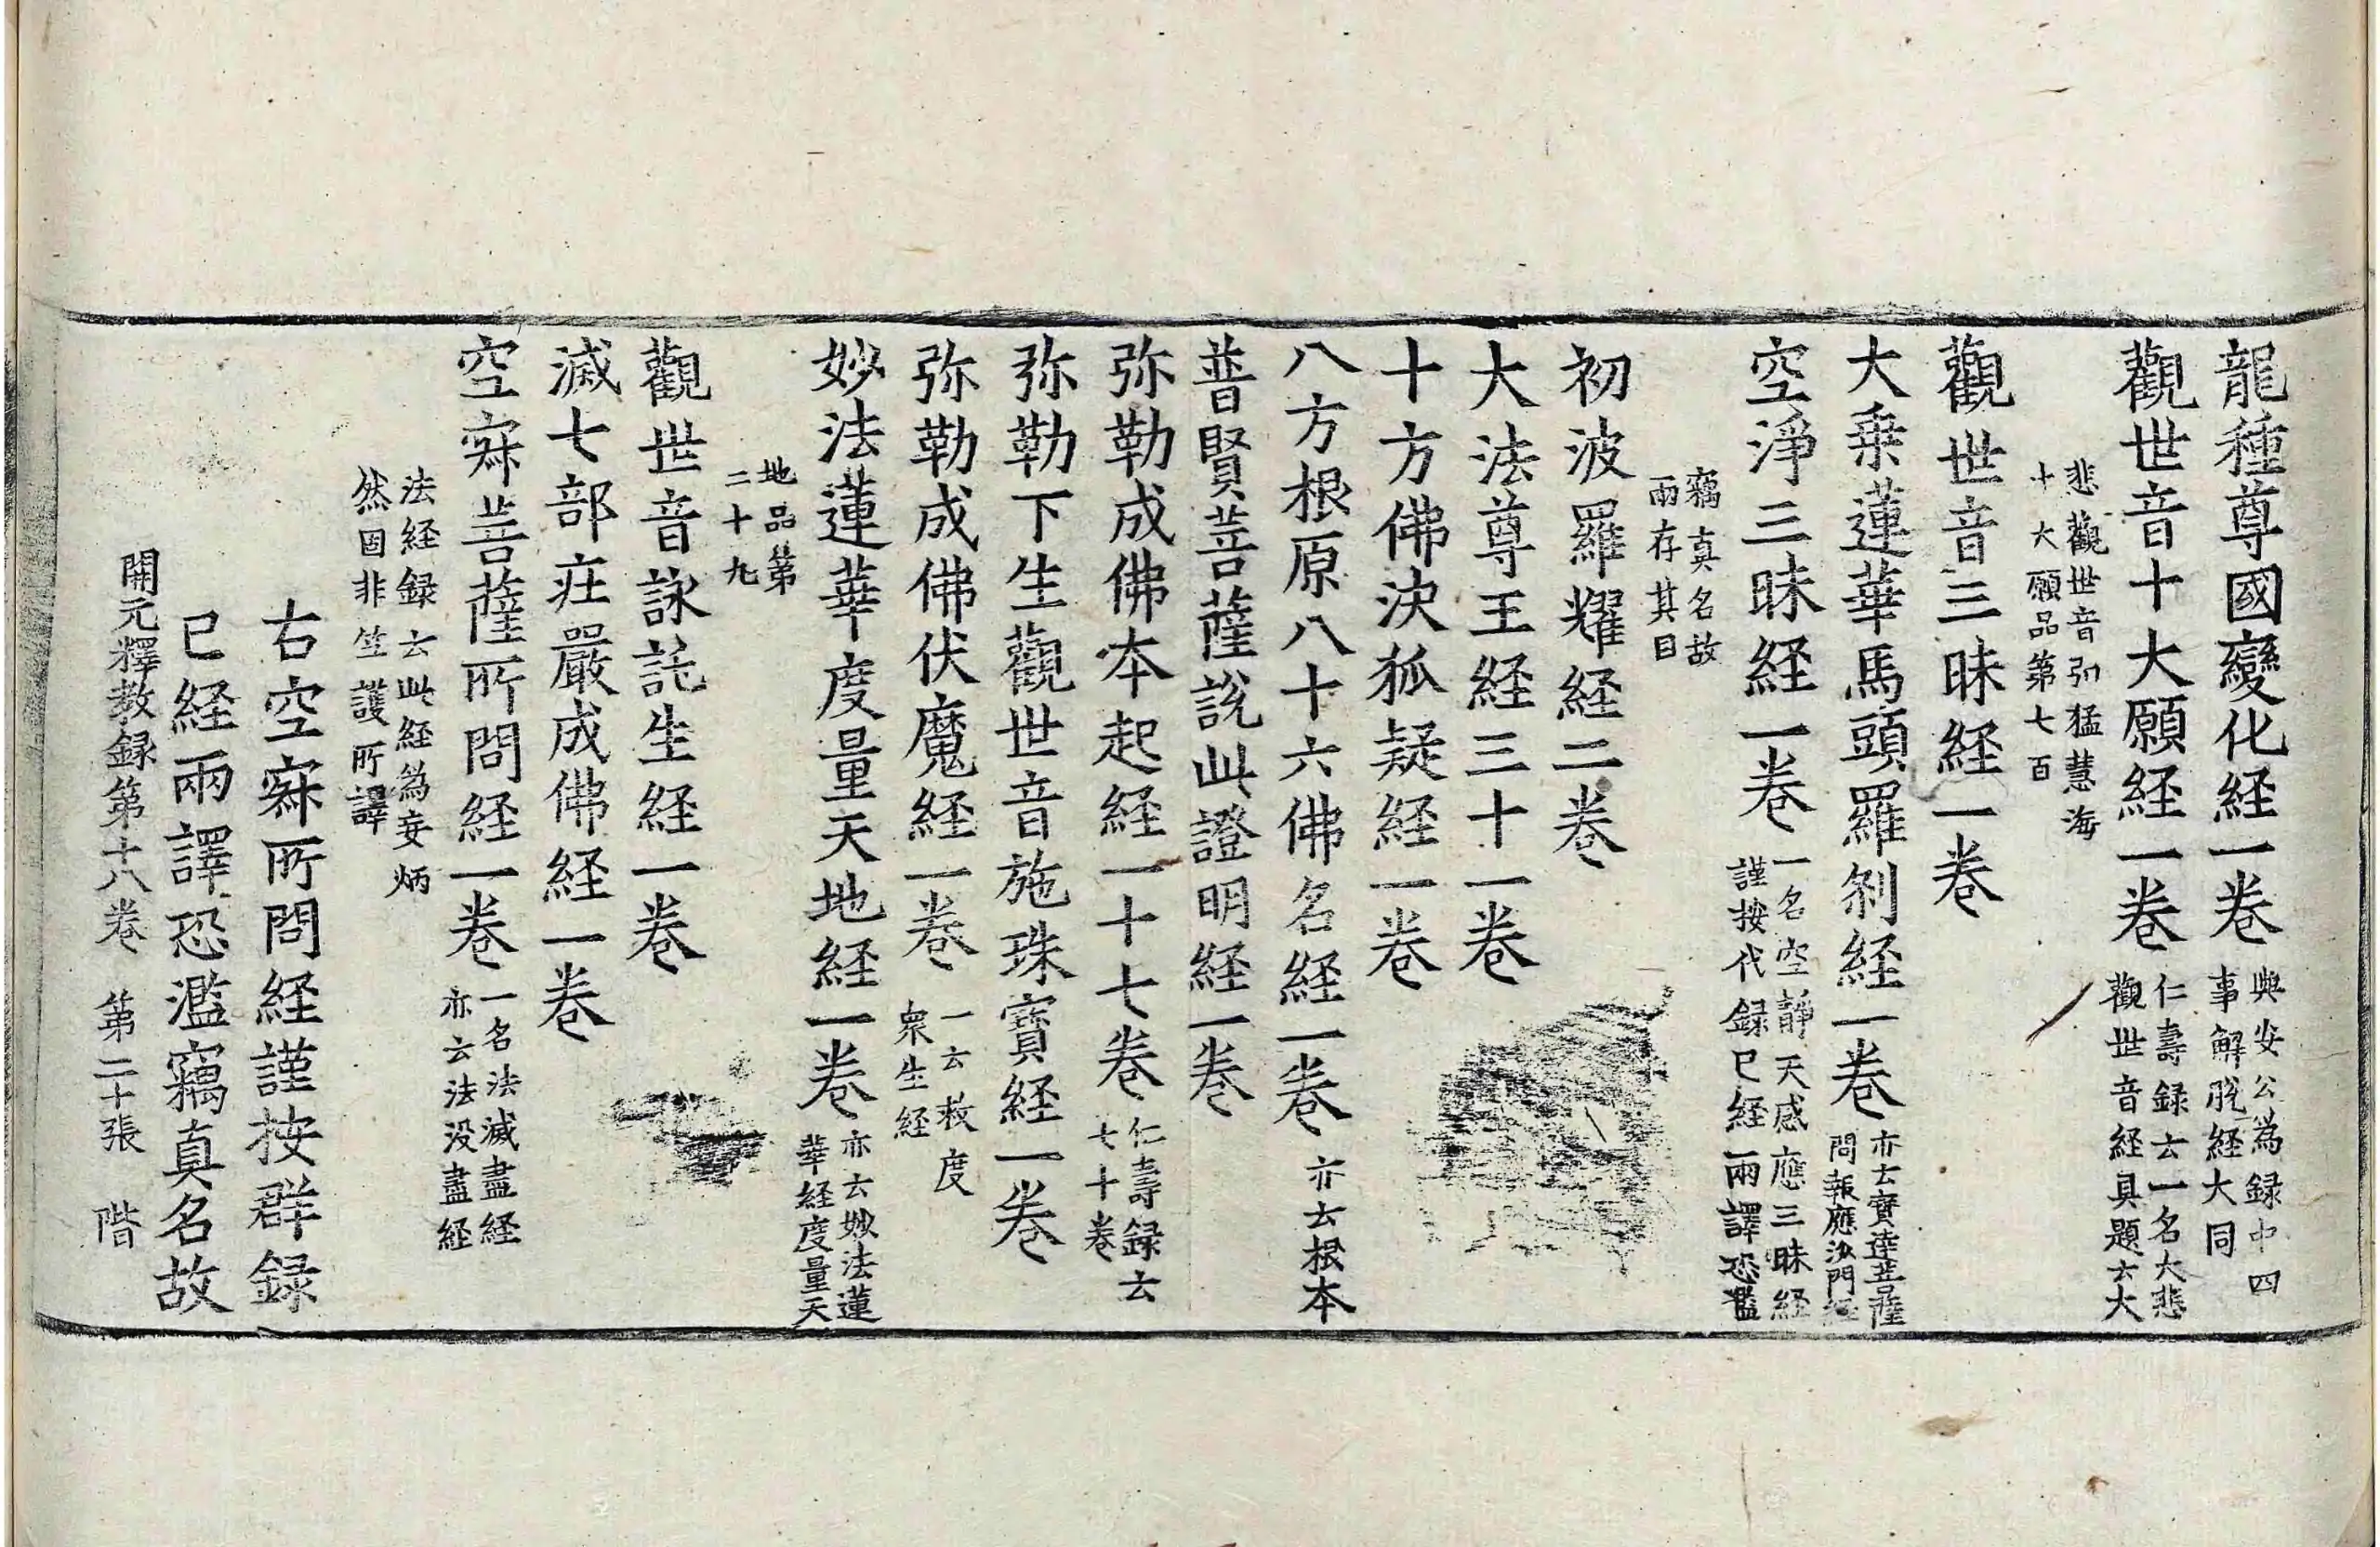 龍種尊國變化経一卷 與安公為録中四
事解脫経大同
觀世音十大願経一卷 仁壽録云一名大悲
觀世音経具題云大
悲觀世音弘猛慧海
十大願品第七百
觀世音三昧経一卷
大乗蓮華馬頭羅剎経一卷 亦云寶達菩薩
問報應沙門経
空淨三昧経一卷 一名空靜天感應三昧経
謹按代録已経兩譯恐濫
竊真名故
兩存其目
初波羅耀経二卷
大法尊王経三十一卷
十方佛決狐疑経一卷
八方根原八十六佛名経一卷 亦云根本
普賢菩薩說此證明経一卷
弥勒成佛本起経一十七卷 仁壽録云
七十卷
弥勒下生觀世音施珠寶経一卷
弥勒成佛伏魔経一卷 一云救度
衆生経
妙法蓮華度量天地経一卷 亦云妙法蓮
華経度量天
地品第
二十九
觀世音詠託生経一卷
滅七部莊嚴成佛経一卷
空寂菩薩所問経一卷 一名法滅盡経
亦云法没盡経
法経録云此経為妄炳
然固非竺護所譯
右空寂所問経謹按群録
已経兩譯恐濫竊真名故
開元釋教録第十八卷 第二十張 階